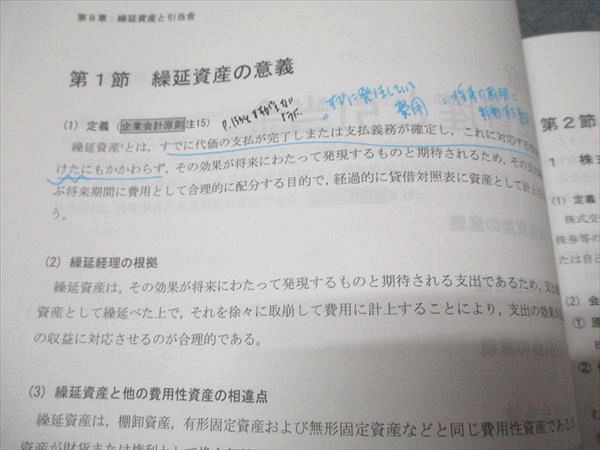 第8章：繰延資産と引当金
第1節 繰延資産の意義
すでに発生している
費用
(1) 定義（企業会計原則注15）
繰延資産とは，すでに代価の支払が完了しまたは支払義務が確定し，これに対応する
けたにもかかわらず，その効果が将来にわたって発現するものと期待されるため，その支
ぶ将来期間に費用として合理的に配分する目的で，経過的に貸借対照表に資産として計上
う。
(2) 繰延経理の根拠
繰延資産は，その効果が将来にわたって発現するものと期待される支出であるため，支出
資産として繰延べた上で，それを徐々に取崩して費用に計上することにより，支出の効果
の収益に対応させるのが合理的である。
(3) 繰延資産と他の費用性資産の相違点
繰延資産は，棚卸資産，有形固定資産および無形固定資産などと同じ費用性資産である
資産が財貨または権利として
第2節
1 株
(1) 定義
株式交
株券等の
たは自己
(2) 会
① 原
②